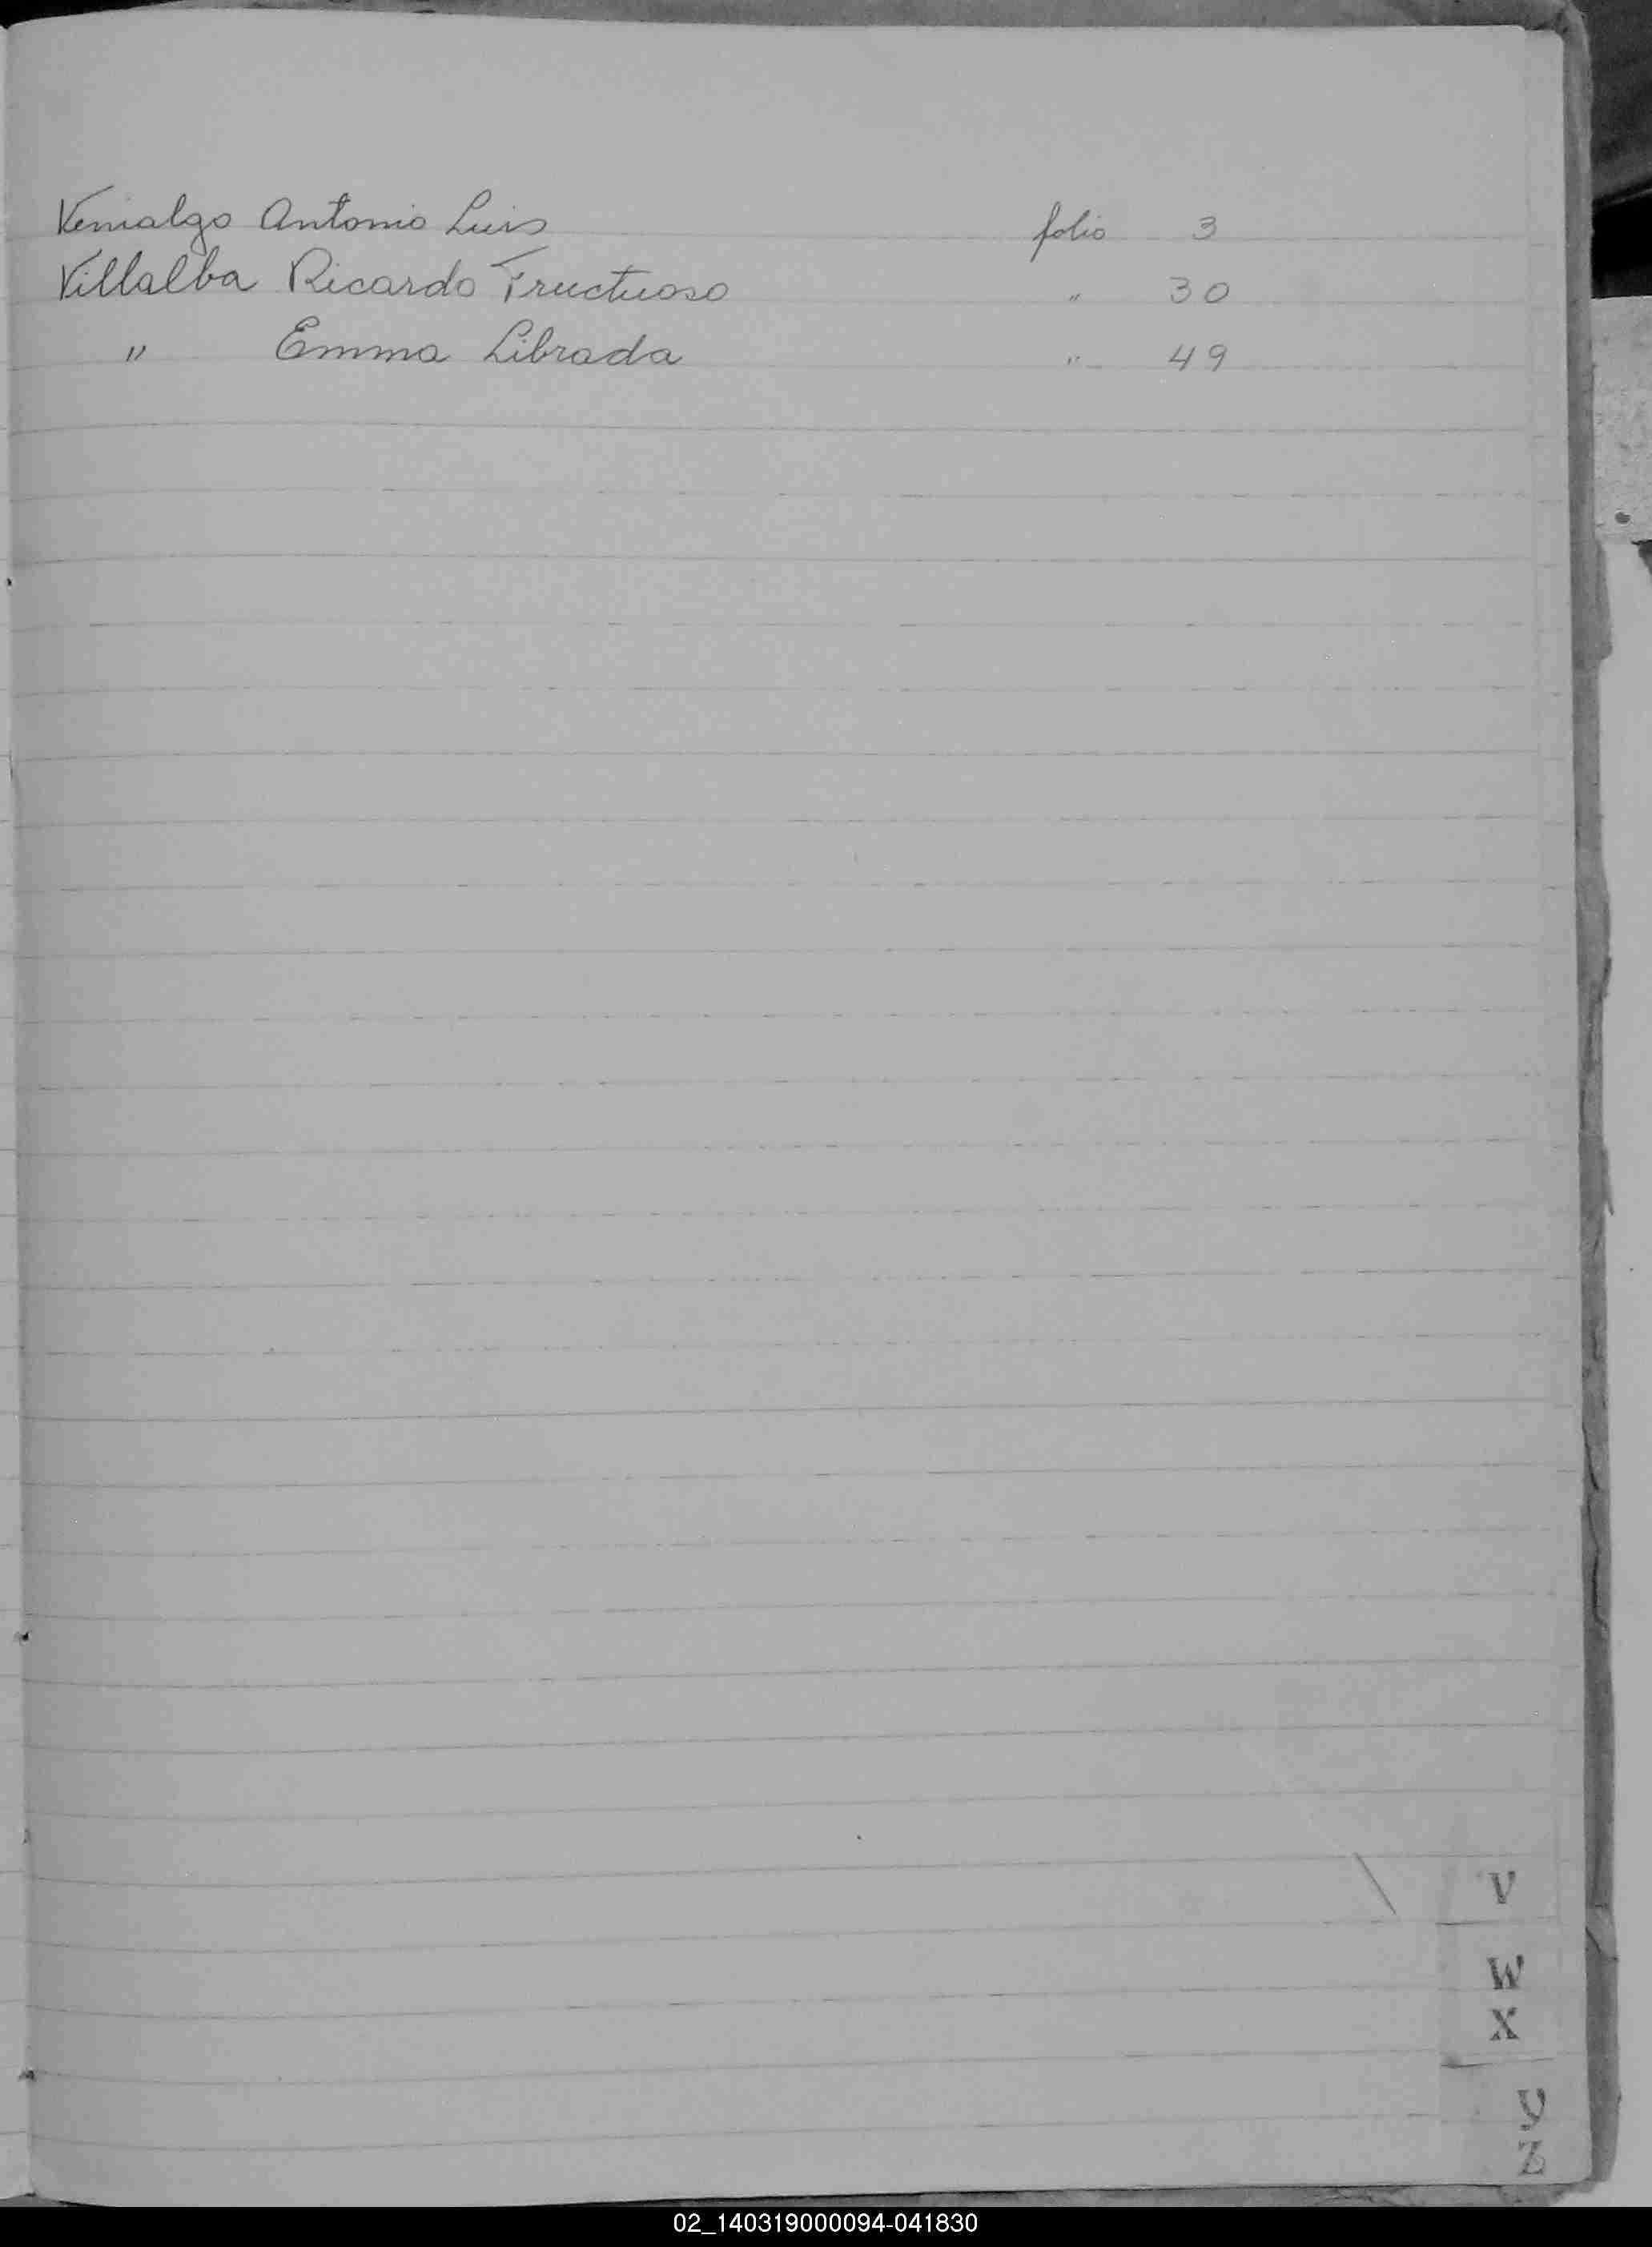 Venialgo Antonio Luis folio 3
Villalba Ricardo Fructuoso " 30
" Emma Librada " 49
V
W
X
Y
Z
02_140319000094-041830